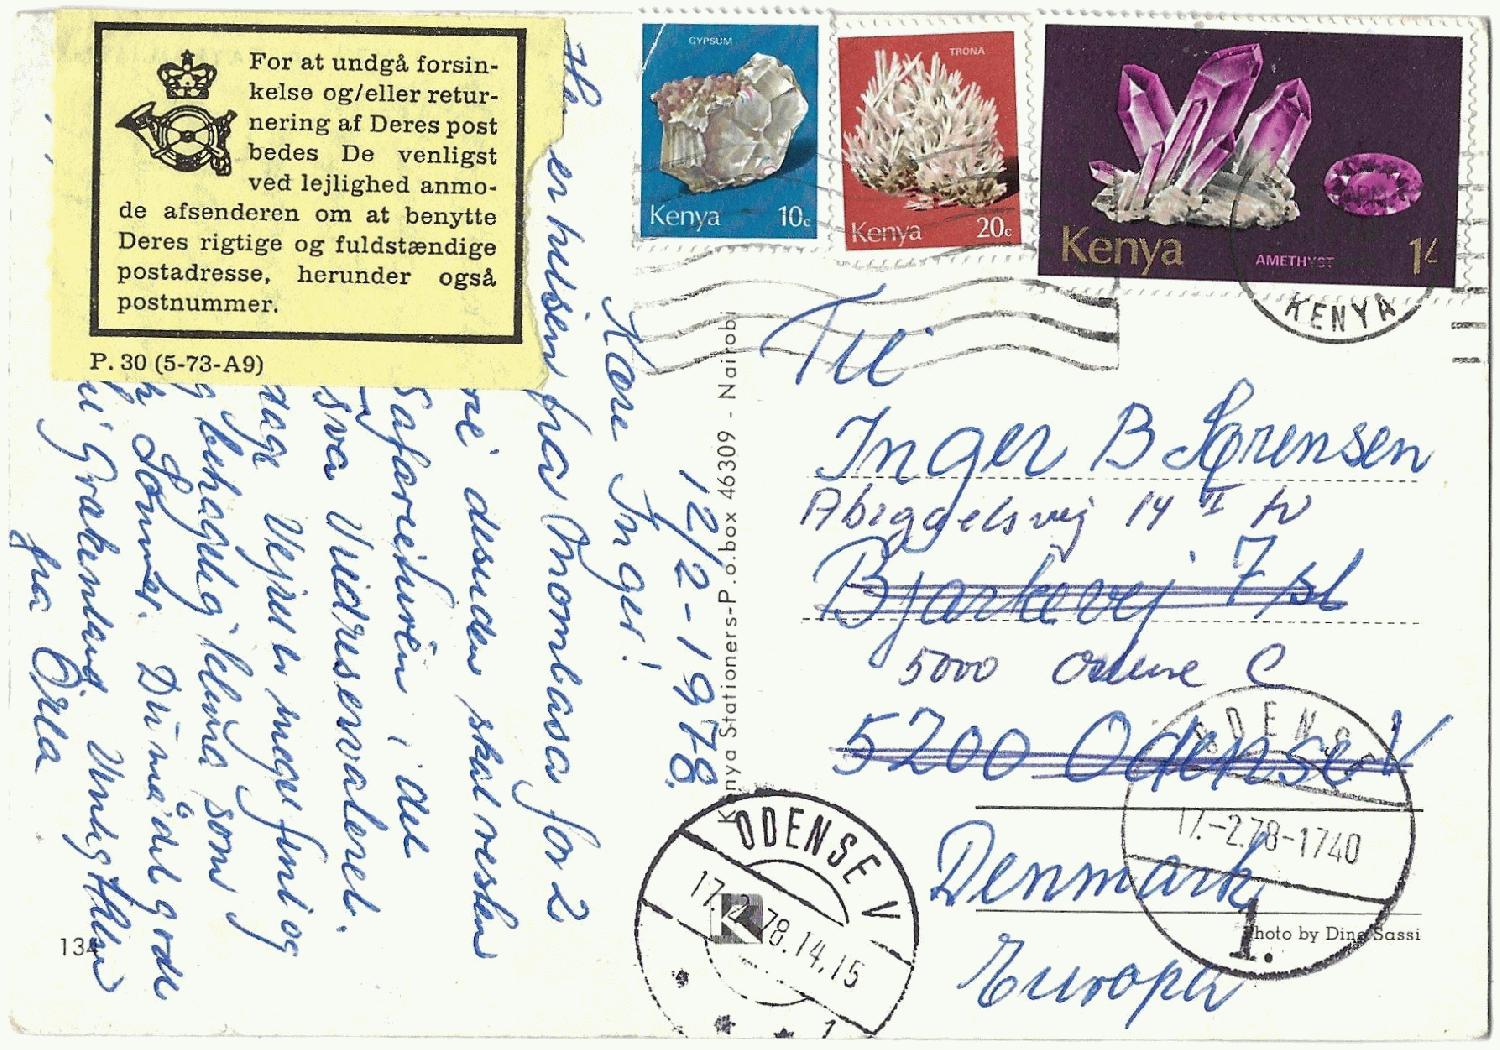 For at undgå forsin-
kelse og/eller retur-
nering af Deres post
bedes De venligst
ved lejlighed anmo-
de afsenderen om at benytte
Deres rigtige og fuldstændige
postadresse, herunder også
postnummer.
P. 30 (5-73-A9)
GYPSUM
Kenya 10c
TRONA
Kenya 20c
Kenya
AMETHYST
1/-
KENYA
12/2-1978
Kære Inger!
er hilsen fra Mombasa for 2
desuden skal resten
Safarituren i det
Vejret er meget fint og
behagelig som
Sommer. Du må del gode
fra Orla
Kenya Stationers-P.o.box 46309 - Nairobi
Til
Inger B Sørensen
Abiggelsvej 14 II tv
Bjarkevej 7 st
5000 Odense C
5200 Odense V
Denmark
Europa
ODENSE
17.-2.78-1740
1.
ODENSE V
17.2.78.14.15
1
K
134
Photo by Dino Sassi